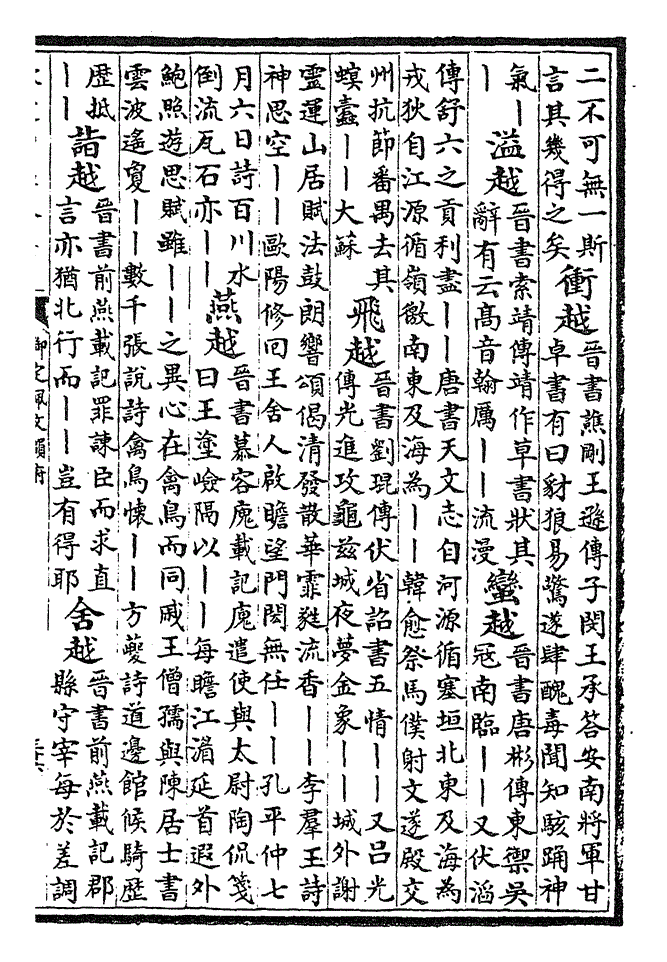 二不可無一斯
言其幾得之矣
衝越
晉書譙剛王遜傳子閔王承答安南將軍甘
卓書有曰豺狼易驚遂肆醜毒聞知駭踊神
氣丨
丨
溢越
晉書索靖傳靖作草書狀其
辭有云高音翰厲丨丨流漫
蠻越
晉書唐彬傳東禦吳
寇南臨丨丨又伏滔
傳舒六之貢利盡丨丨唐書天文志自河源循塞垣北東及海為
戎狄自江源循嶺徼南東及海為丨丨韓愈祭馬僕射文遂殿交
州抗節番禺去其
螟蠹丨丨大蘇
飛越
晉書劉琨傳伏省詔書五情丨丨又呂光
傳光進攻龜茲城夜夢金象丨丨城外謝
靈運山居賦法鼓朗響頌偈清發散華霏蕤流香丨丨李羣玉詩
神思空丨丨歐陽修回王舍人啟瞻望門閎無任丨丨孔平仲七
月六日詩百川水
倒流瓦石亦丨丨
燕越
晉書慕容廆載記廆遣使與太尉陶侃箋
曰王塗嶮隔以丨丨每瞻江湄延首遐外
鮑照遊思賦雖丨丨之異心在禽鳥而同戚王僧孺與陳居士書
雲波遙敻丨丨數千張說詩禽鳥懷丨丨方夔詩道邊館候騎歷
歷抵
丨丨
詣越
晉書前燕載記罪諫臣而求直
言亦猶北行而丨丨豈有得耶
舍越
晉書前燕載記郡
縣守宰每於差調
御定佩文韻府